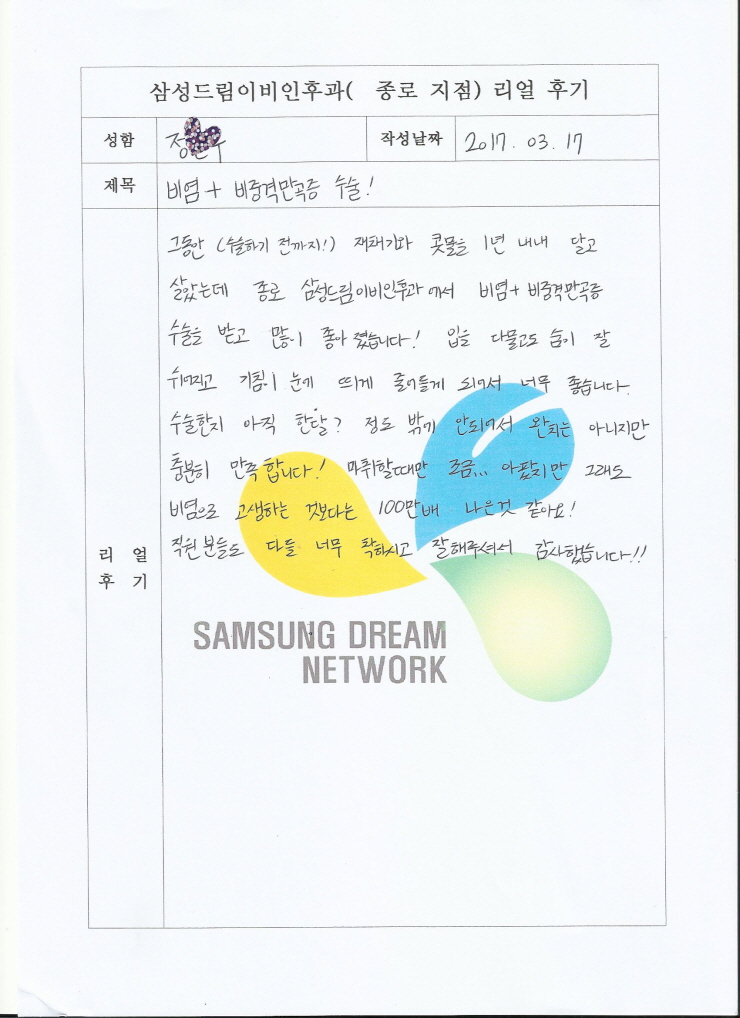 삼성드림이비인후과( 종로 지점) 리얼 후기
성함 정 작성날짜 2017. 03. 17
제목 비염 + 비중격만곡증 수술!
그동안 (수술하기 전까지!) 재채기와 콧물을 1년 내내 달고
살았는데 종로 삼성드림이비인후과에서 비염+비중격만곡증
수술을 받고 많이 좋아졌습니다! 입을 다물고도 숨이 잘
쉬어지고 기침이 눈에 띄게 줄어들게 되어서 너무 좋습니다.
수술한지 아직 한달? 정도 밖에 안되어서 완치는 아니지만
충분히 만족합니다! 마취할때만 조금... 아팠지만 그래도
비염으로 고생하는 것보다는 100만배 나은것 같아요!
직원분들도 다들 너무 착하시고 잘해주셔서 감사했습니다!!
리 얼
후 기
SAMSUNG DREAM
NETWORK